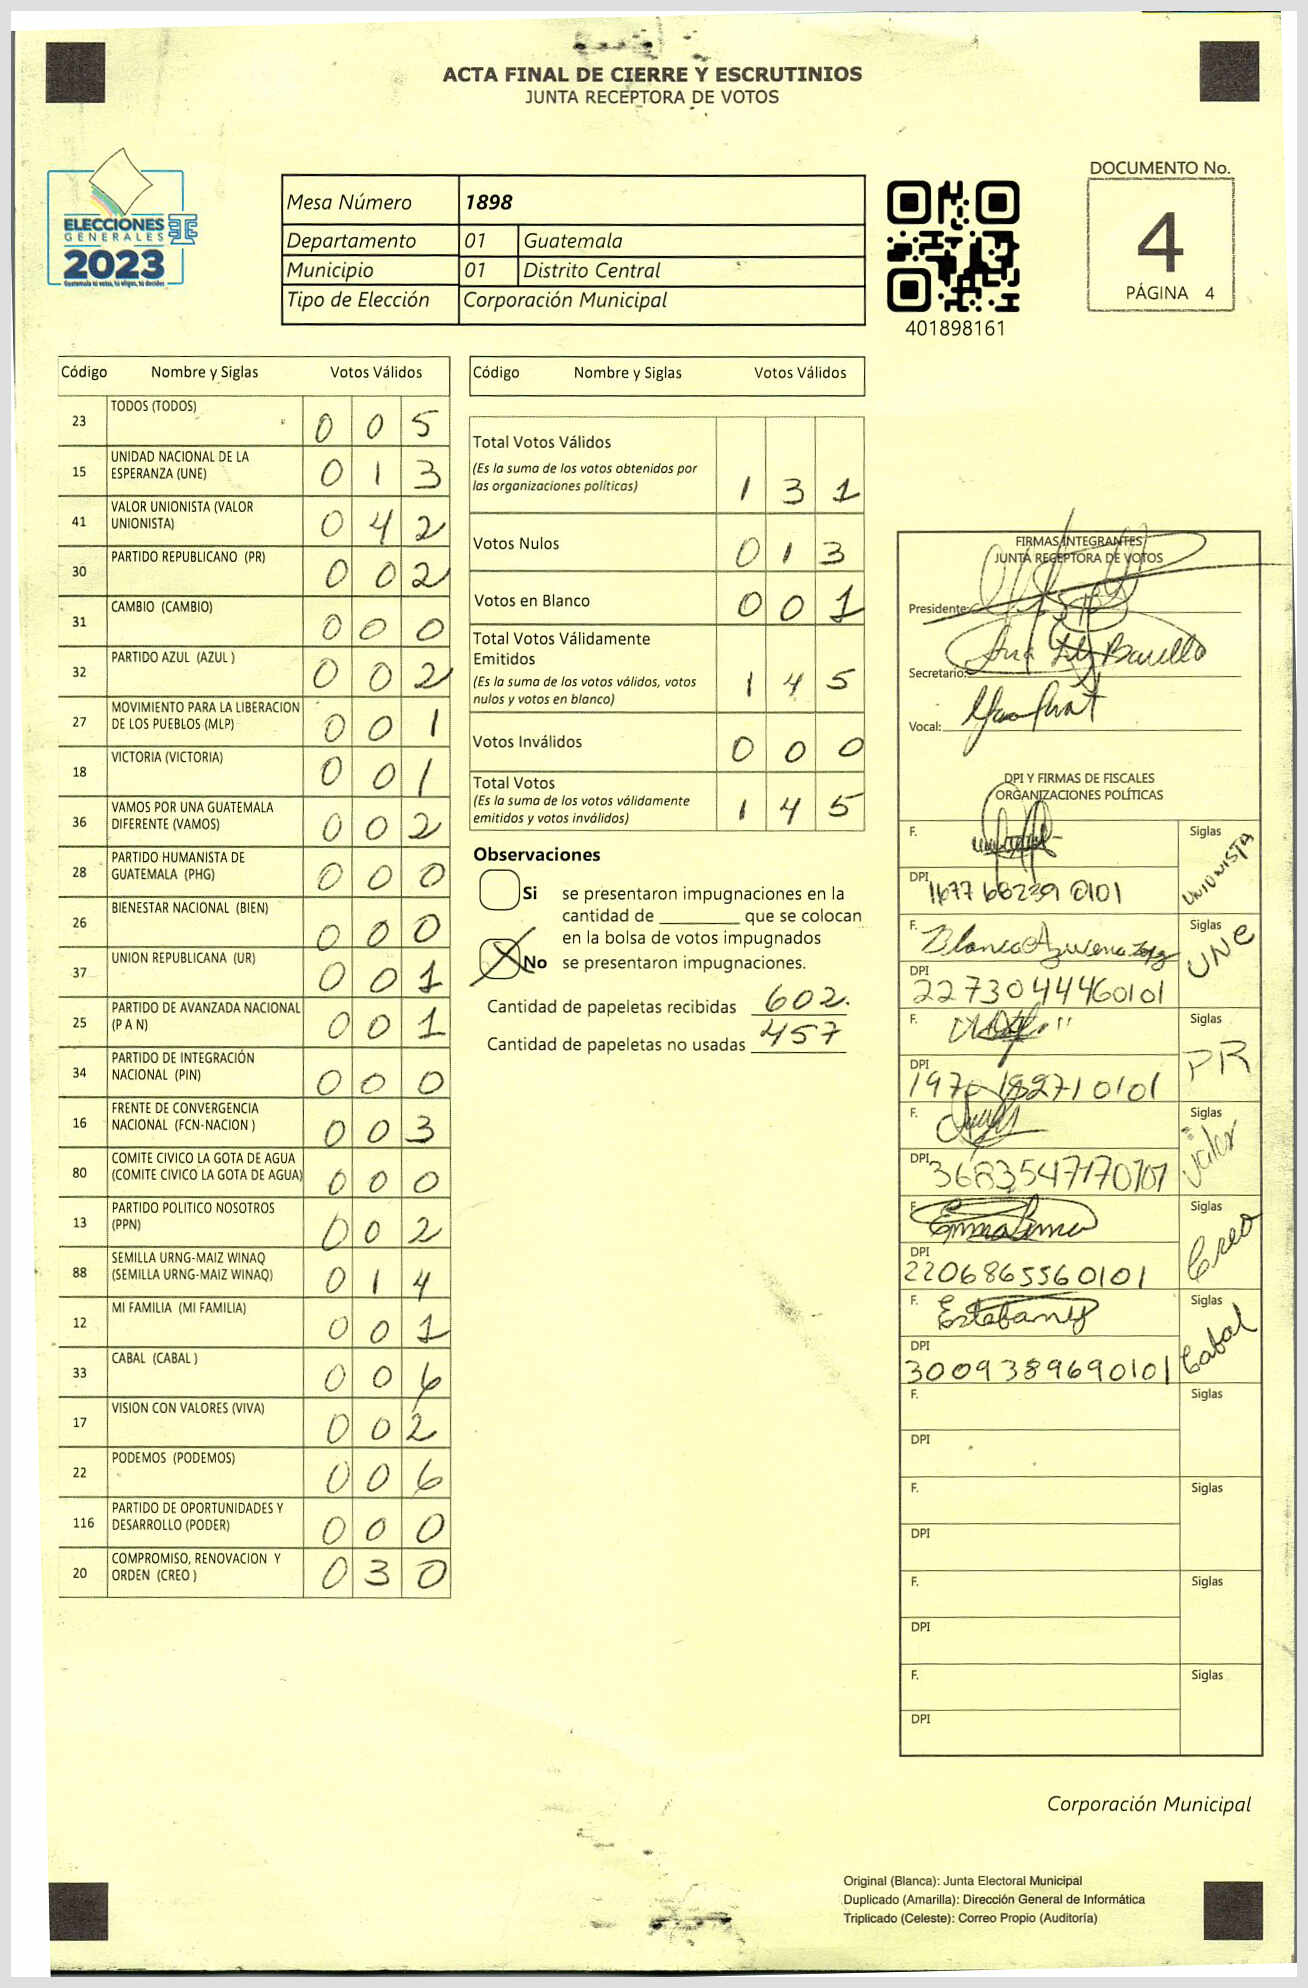 ACTA FINAL DE CIERRE Y ESCRUTINIOS
JUNTA RECEPTORA DE VOTOS
ELECCIONES
GENERALES
2023
Mesa Número 1898
Departamento 01 Guatemala
Municipio 01 Distrito Central
Tipo de Elección Corporación Municipal
401898161
DOCUMENTO No.
4
PÁGINA 4
Código Nombre y Siglas Votos Válidos
23 TODOS (TODOS) 0 0 5
15 UNIDAD NACIONAL DE LA ESPERANZA (UNE) 0 1 3
41 VALOR UNIONISTA (VALOR UNIONISTA) 0 4 2
30 PARTIDO REPUBLICANO (PR) 0 0 2
31 CAMBIO (CAMBIO) 0 0 0
32 PARTIDO AZUL (AZUL ) 0 0 2
27 MOVIMIENTO PARA LA LIBERACION DE LOS PUEBLOS (MLP) 0 0 1
18 VICTORIA (VICTORIA) 0 0 1
36 VAMOS POR UNA GUATEMALA DIFERENTE (VAMOS) 0 0 2
28 PARTIDO HUMANISTA DE GUATEMALA (PHG) 0 0 0
26 BIENESTAR NACIONAL (BIEN) 0 0 0
37 UNION REPUBLICANA (UR) 0 0 1
25 PARTIDO DE AVANZADA NACIONAL (P A N) 0 0 1
34 PARTIDO DE INTEGRACIÓN NACIONAL (PIN) 0 0 0
16 FRENTE DE CONVERGENCIA NACIONAL (FCN-NACION ) 0 0 3
80 COMITE CIVICO LA GOTA DE AGUA (COMITE CIVICO LA GOTA DE AGUA) 0 0 0
13 PARTIDO POLITICO NOSOTROS (PPN) 0 0 2
88 SEMILLA URNG-MAIZ WINAQ (SEMILLA URNG-MAIZ WINAQ) 0 1 4
12 MI FAMILIA (MI FAMILIA) 0 0 1
33 CABAL (CABAL ) 0 0 6
17 VISION CON VALORES (VIVA) 0 0 2
22 PODEMOS (PODEMOS) 0 0 6
116 PARTIDO DE OPORTUNIDADES Y DESARROLLO (PODER) 0 0 0
20 COMPROMISO, RENOVACION Y ORDEN (CREO ) 0 3 0
Código Nombre y Siglas Votos Válidos
Total Votos Válidos
(Es la suma de los votos obtenidos por
las organizaciones políticas) 1 3 1
Votos Nulos 0 1 3
Votos en Blanco 0 0 1
Total Votos Válidamente
Emitidos
(Es la suma de los votos válidos, votos
nulos y votos en blanco) 1 4 5
Votos Inválidos 0 0 0
Total Votos
(Es la suma de los votos válidamente
emitidos y votos inválidos) 1 4 5
Observaciones
Si se presentaron impugnaciones en la
cantidad de ________ que se colocan
en la bolsa de votos impugnados
No se presentaron impugnaciones.
Cantidad de papeletas recibidas 602.
Cantidad de papeletas no usadas 457
FIRMAS INTEGRANTES
JUNTA RECEPTORA DE VOTOS
Presidente:
Secretario:
Vocal:
DPI Y FIRMAS DE FISCALES
ORGANIZACIONES POLÍTICAS
F. Siglas UNIONISTA
DPI 1677 68239 0101
F. Blanca Azucena Siglas UNE
DPI 2273044460101
F. Siglas PR
DPI 1970 18271 0101
F. Siglas Valor
DPI 3683547170101
F. Siglas Creo
DPI 2206865560101
F. Estefany Siglas Cabal
DPI 3009389690101
F. Siglas
DPI
F. Siglas
DPI
F. Siglas
DPI
F. Siglas
DPI
Corporación Municipal
Original (Blanca): Junta Electoral Municipal
Duplicado (Amarilla): Dirección General de Informática
Triplicado (Celeste): Correo Propio (Auditoría)